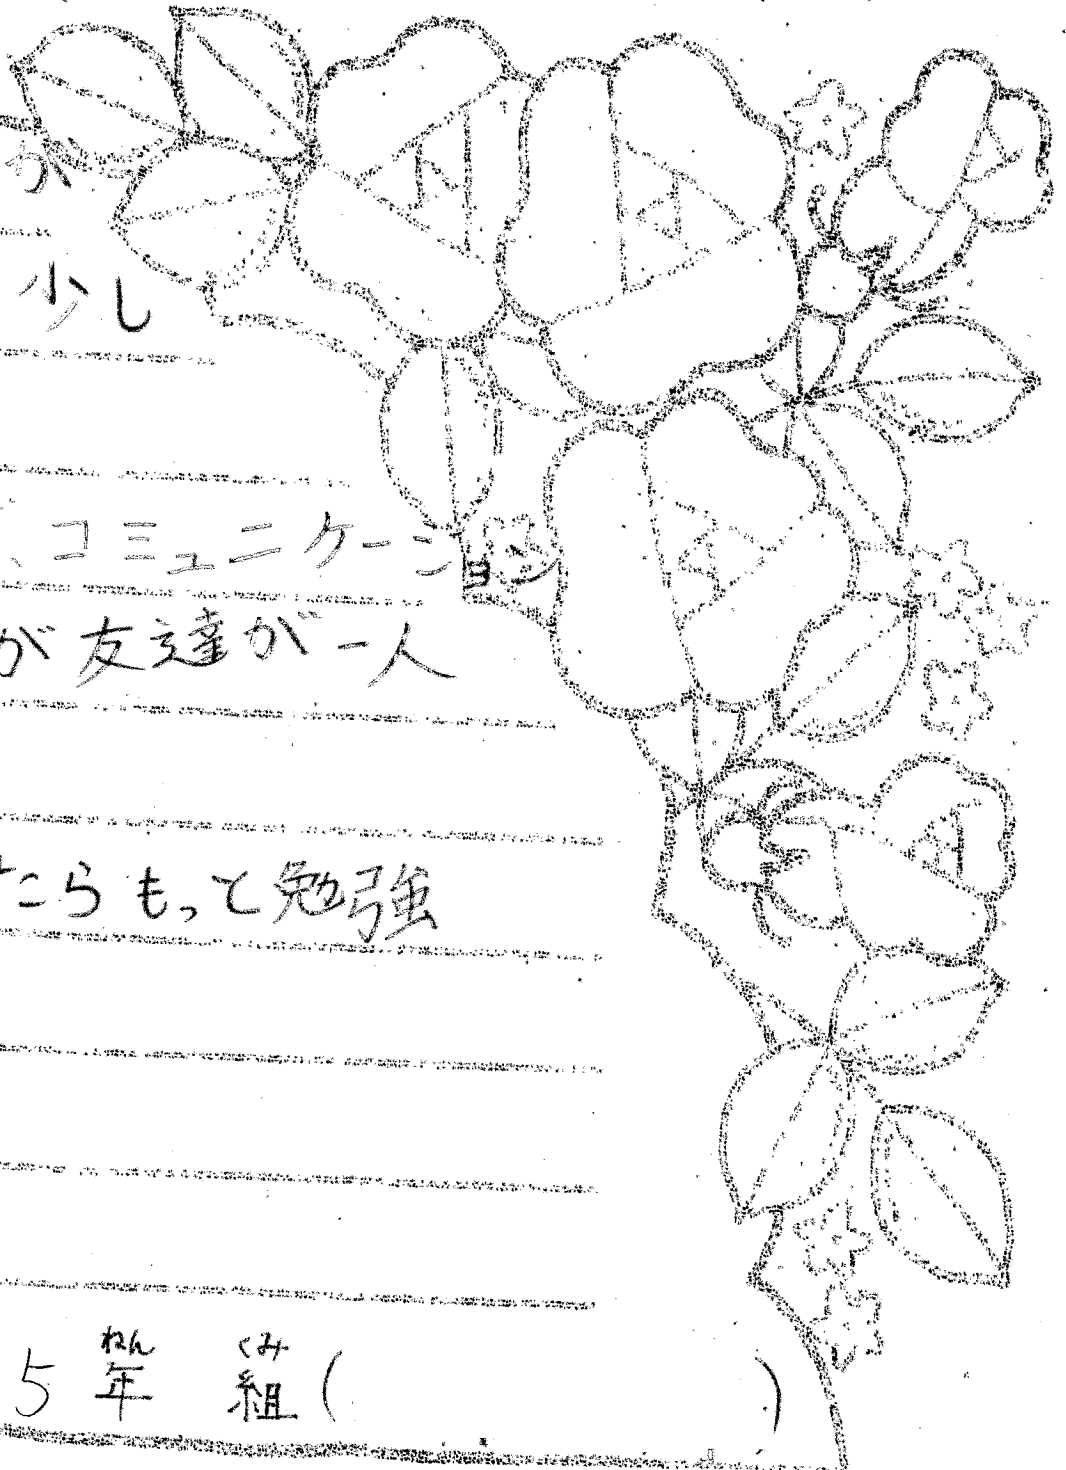 が
少し
、コミュニケーション
が友達が一人
たらもっと勉強
5年 組( )
ねん くみ